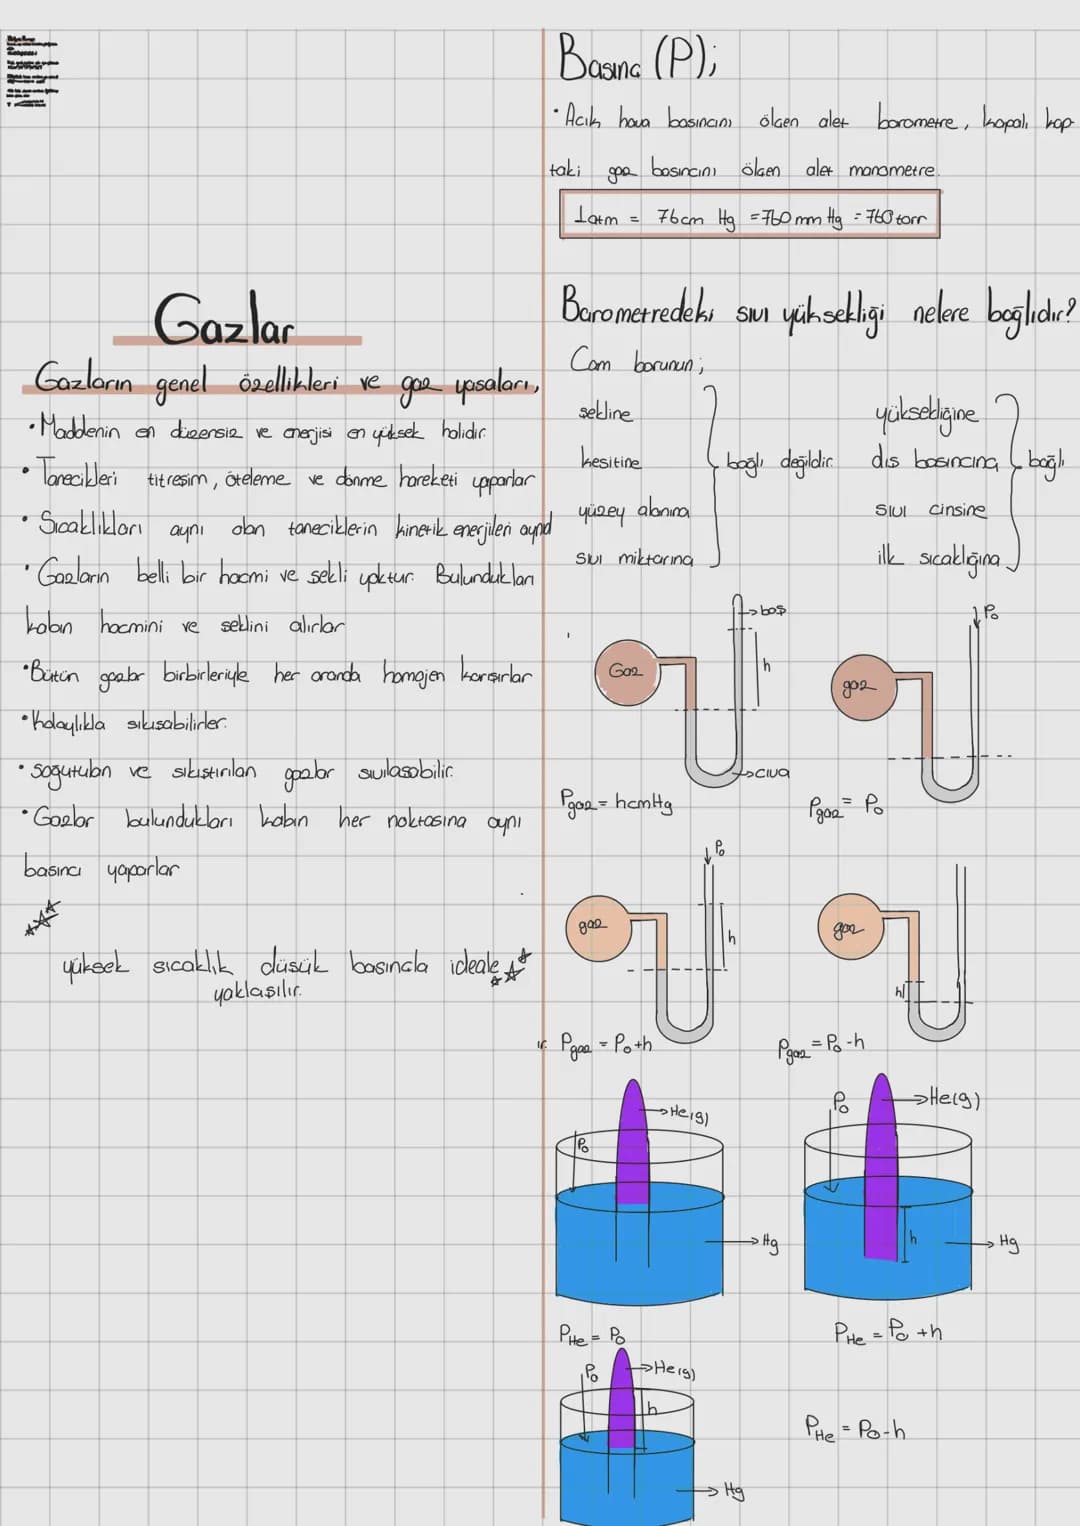 Gazlar
Gazların genel özellikleri ve gaz yasaları;
• Maddenin en düzensiz ve enerjisi en yüksek halidir.
• Tanecikleri titresim, öteleme ve dönme hareketi yaparlar
• Sıcaklıkları aynı olan taneciklerin kinetik enerjileri aynıd
• Gazların belli bir hacmi ve sekli yoktur. Bulundukları
kabın hacmini ve seklini alırlar
• Bütün gazlar birbirleriyle her oranda homojen karısırlar
• Kolaylıkla sıkısabilirler.
• soğutulan ve sıkıstırılan gazlar sıvılasabilir.
• Gazlar bulundukları kabın her noktasına aynı
basıncı yaparlar
yüksek sıcaklık düsük basıncla ideale
yaklaşılır.
Basınc (P);
• Acık hava basıncını ölcen alet barometre, kapalı kap-
taki gaz basıncını ölcen alet manometre.
1 atm = 76 cm Hg = 760 mm Hg = 760 torr
Barometredeki sıvı yüksekliği nelere bağlıdır?
Cam borunun;
sekline
kesitine
yüzey alanına
sıvı miktarına
bağlı değildir.
yüksekliğine
dıs basıncına
sıvı cinsine
ilk sıcaklığına
bağlı
boş
Gaz
h
cıva
Pgaz = h cmHg
P₀
gaz
Pgaz = P₀
P₀
gaz
h
ır.
Pgaz = P₀ + h
gaz
h
Pgaz = P₀ - h
He(g)
P₀
Hg
PHe = P₀
P₀
He(g)
h
Hg
PHe = P₀ + h
P₀
He(g)
h
Hg
PHe = P₀ - h